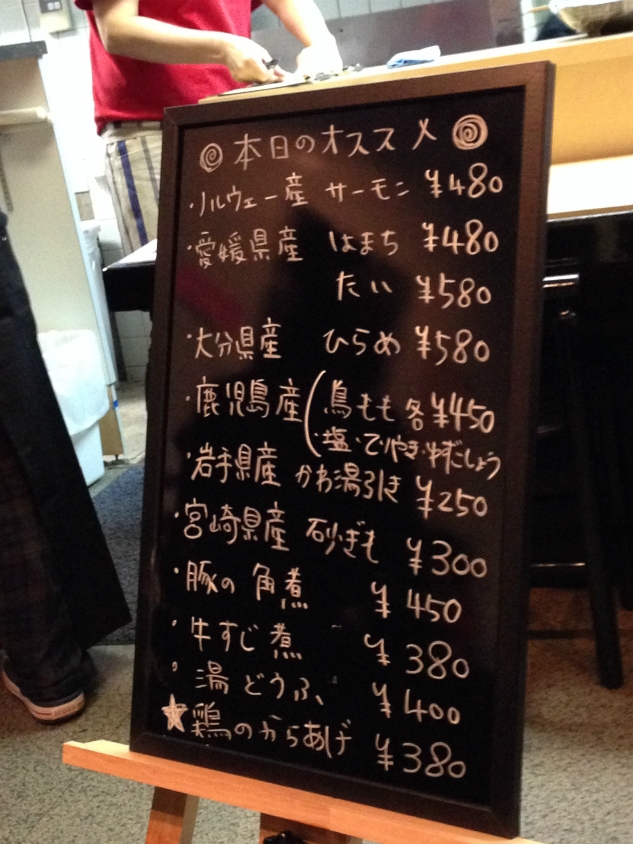 本日のオススメ
・ノルウェー産 サーモン ¥480
・愛媛県産 はまち ¥480
たい ¥580
・大分県産 ひらめ ¥580
・鹿児島産 (鳥もも 各¥450
・塩・てりやき・ゆずこしょう
・岩手県産 かわ湯引き ¥250
・宮崎県産 砂ぎも ¥300
・豚の角煮 ¥450
・牛すじ煮 ¥380
・湯どうふ ¥400
☆鶏のからあげ ¥380